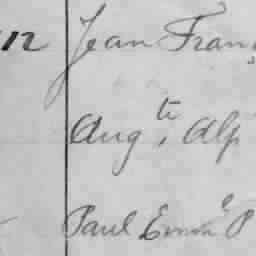 12 Jean Fran
Aug.te Alp
Paul Emm.e P